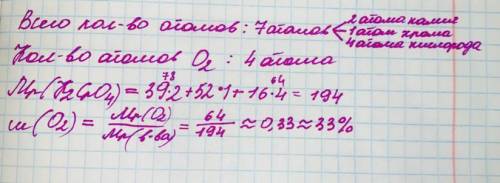 Всего кол-во атомов: 7 атомов 2 атома калия
1 атом хрома
4 атома кислорода
Кол-во атомов O₂ : 4 атома
78 64
Mr(K₂CrO₄) = 39·2 + 52·1 + 16·4 = 194
ω(O₂) = Mr(O₂) / Mr(в-ва) = 64 / 194 ≈ 0,33 ≈ 33%